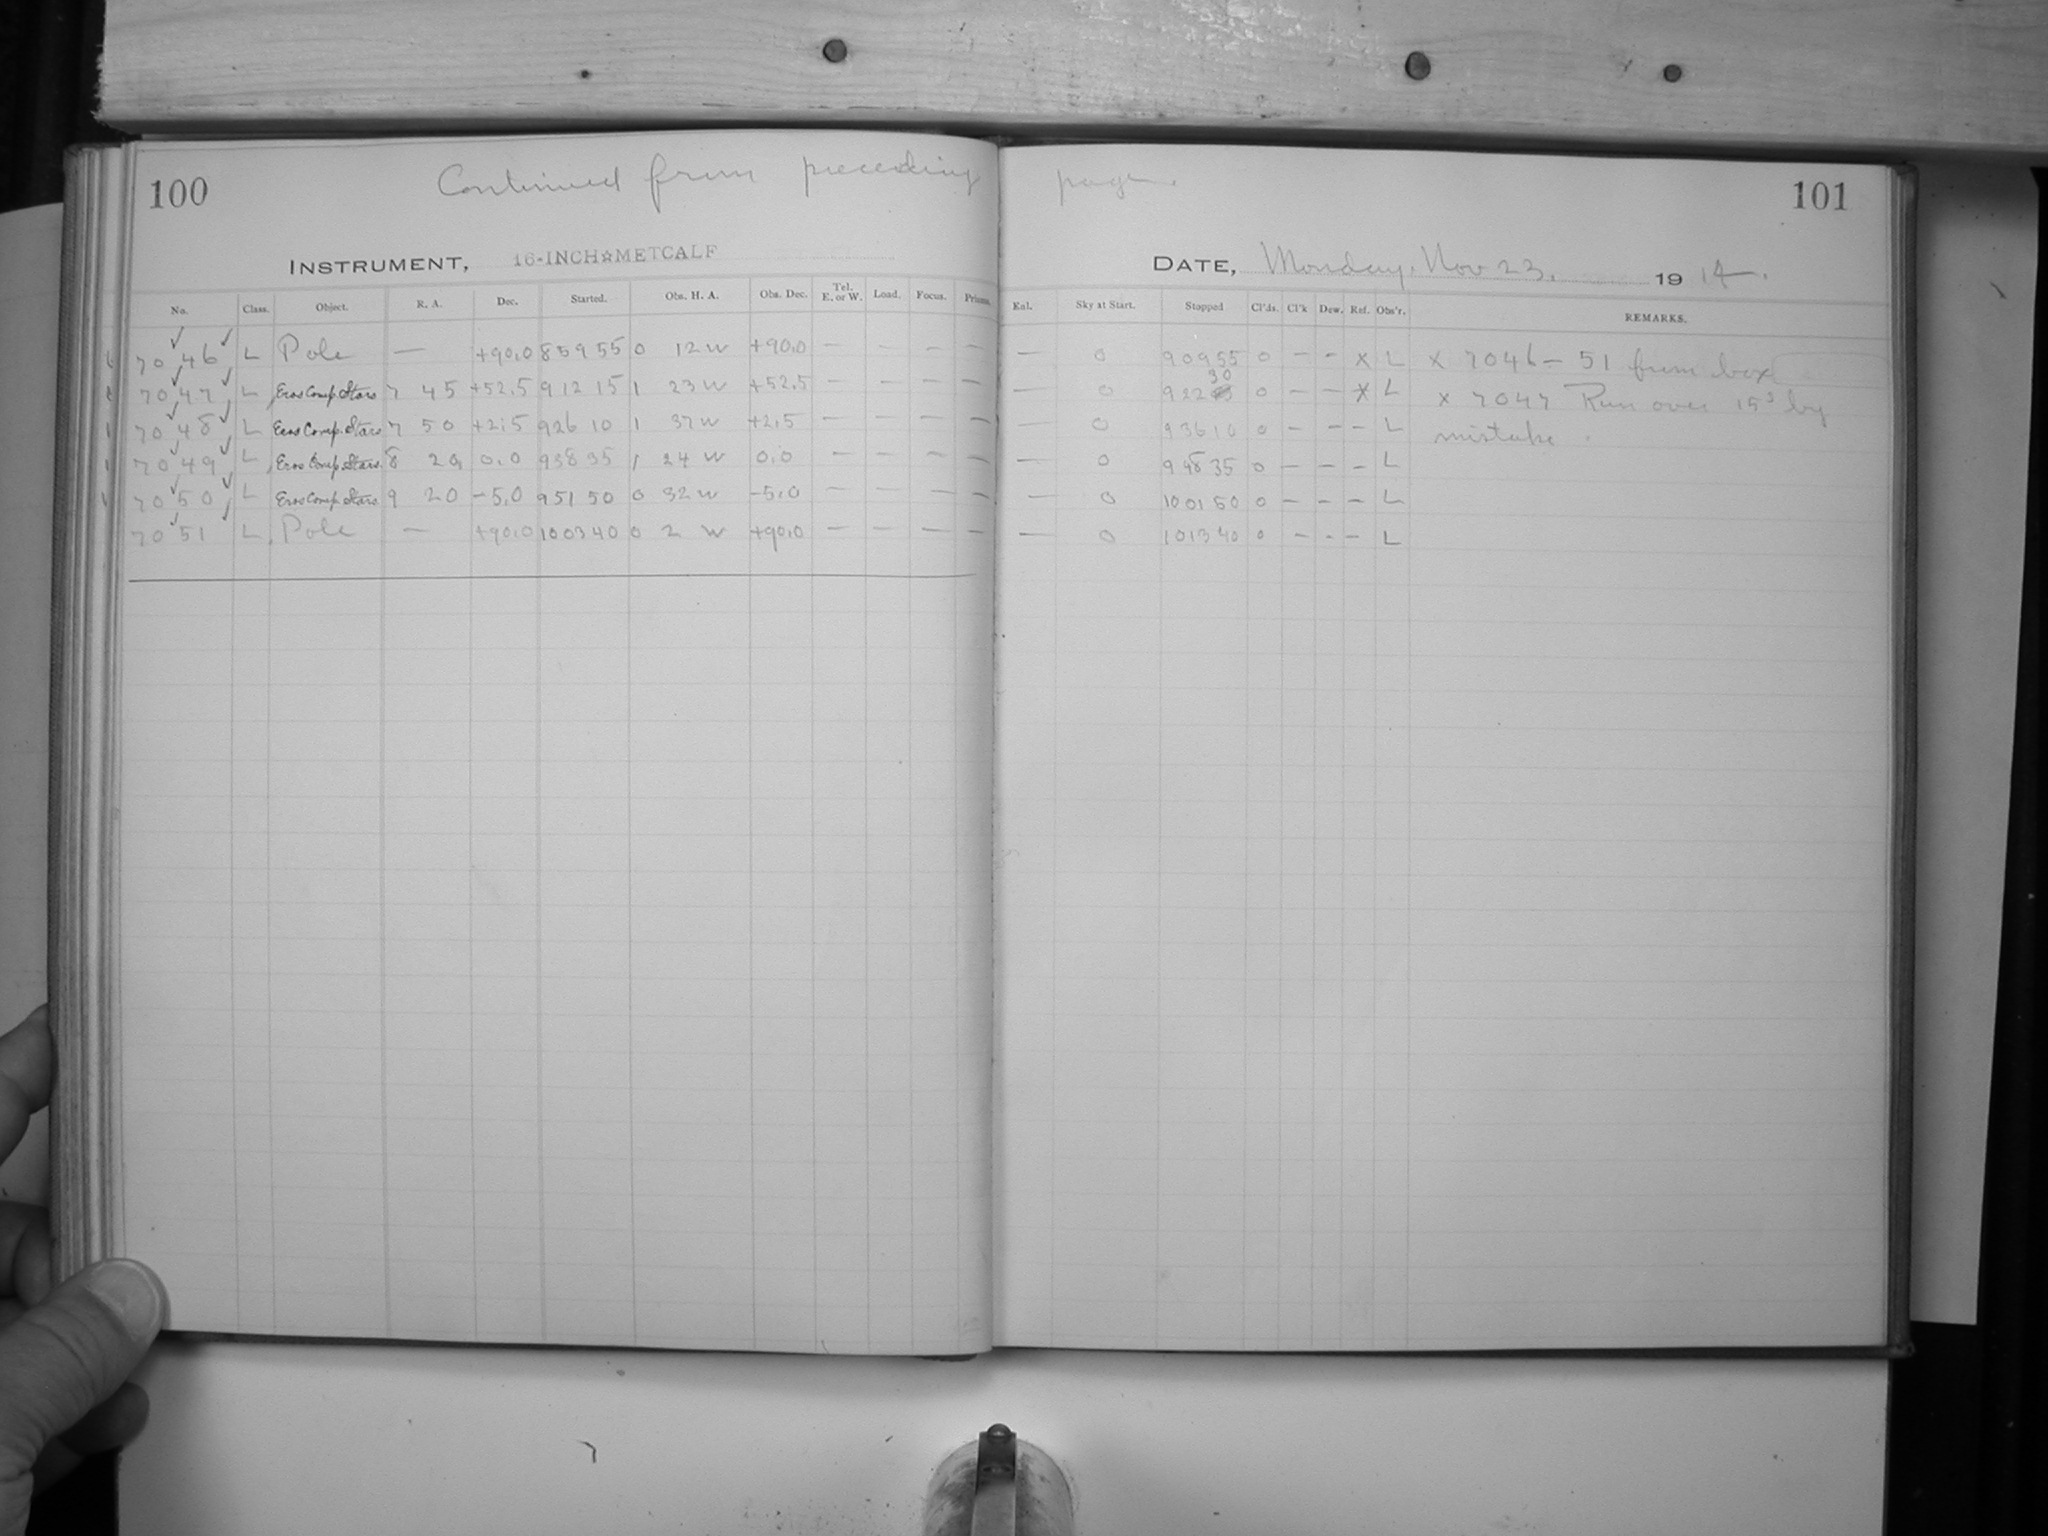 100 Continued from preceding page. 101
INSTRUMENT, 16-INCH☆METCALF DATE, Monday. Nov 23, 1914.
No. Class. Object. R. A. Dec. Started. Obs. H. A. Obs. Dec. Tel. E. or W. Load. Focus. Prisms. Enl. Sky at Start. Stopped Cl'ds. Cl'k Dew. Ref. Obs'r. REMARKS.
7046 L Pole — +90,0 8 59 55 0 12 W +90,0 — — — — — 0 9 09 55 0 – – x L x 7046 – 51 from box
7047 L Eros Comp. Stars 7 45 +52,5 9 12 15 1 23 W +52,5 — — — — — 0 9 22 30 0 – – * L x 7047 Run over 15s by
7048 L Eros Comp. Stars 7 50 +2,5 9 26 10 1 37 W +2,5 — — — — — 0 9 36 10 0 – – – L mistake.
7049 L Eros Comp. Stars 8 20 0,0 9 38 35 1 24 W 0,0 — — — — — 0 9 48 35 0 – – – L
7050 L Eros Comp. Stars 9 20 –5,0 9 51 50 0 32 W –5,0 — — — — — 0 10 01 50 0 – – – L
7051 L Pole — +90,0 10 03 40 0 2 W +90,0 — — — — — 0 10 13 40 0 – – – L